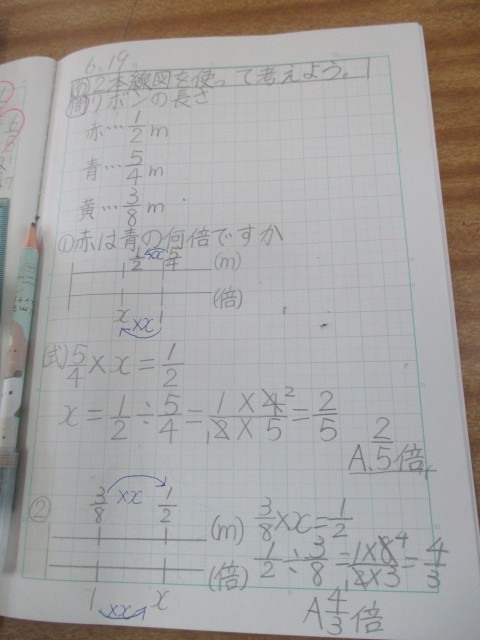 6.19
め 2本線図を使って考えよう。
問 リボンの長さ
赤…1/2 m
青…5/4 m
黄…3/8 m
①赤は青の何倍ですか
×x
1/2 5/4 (m)
(倍)
x 1
×x
(式) 5/4 × x = 1/2
x = 1/2 ÷ 5/4 = 1×4 2/1 2×5 = 2/5
A. 2/5 倍
② 3/8 ×x 1/2
(m)
(倍)
1 ×x x
3/8 × x = 1/2
1/2 ÷ 3/8 = 1×8 4/1 2×3 = 4/3
A 4/3 倍